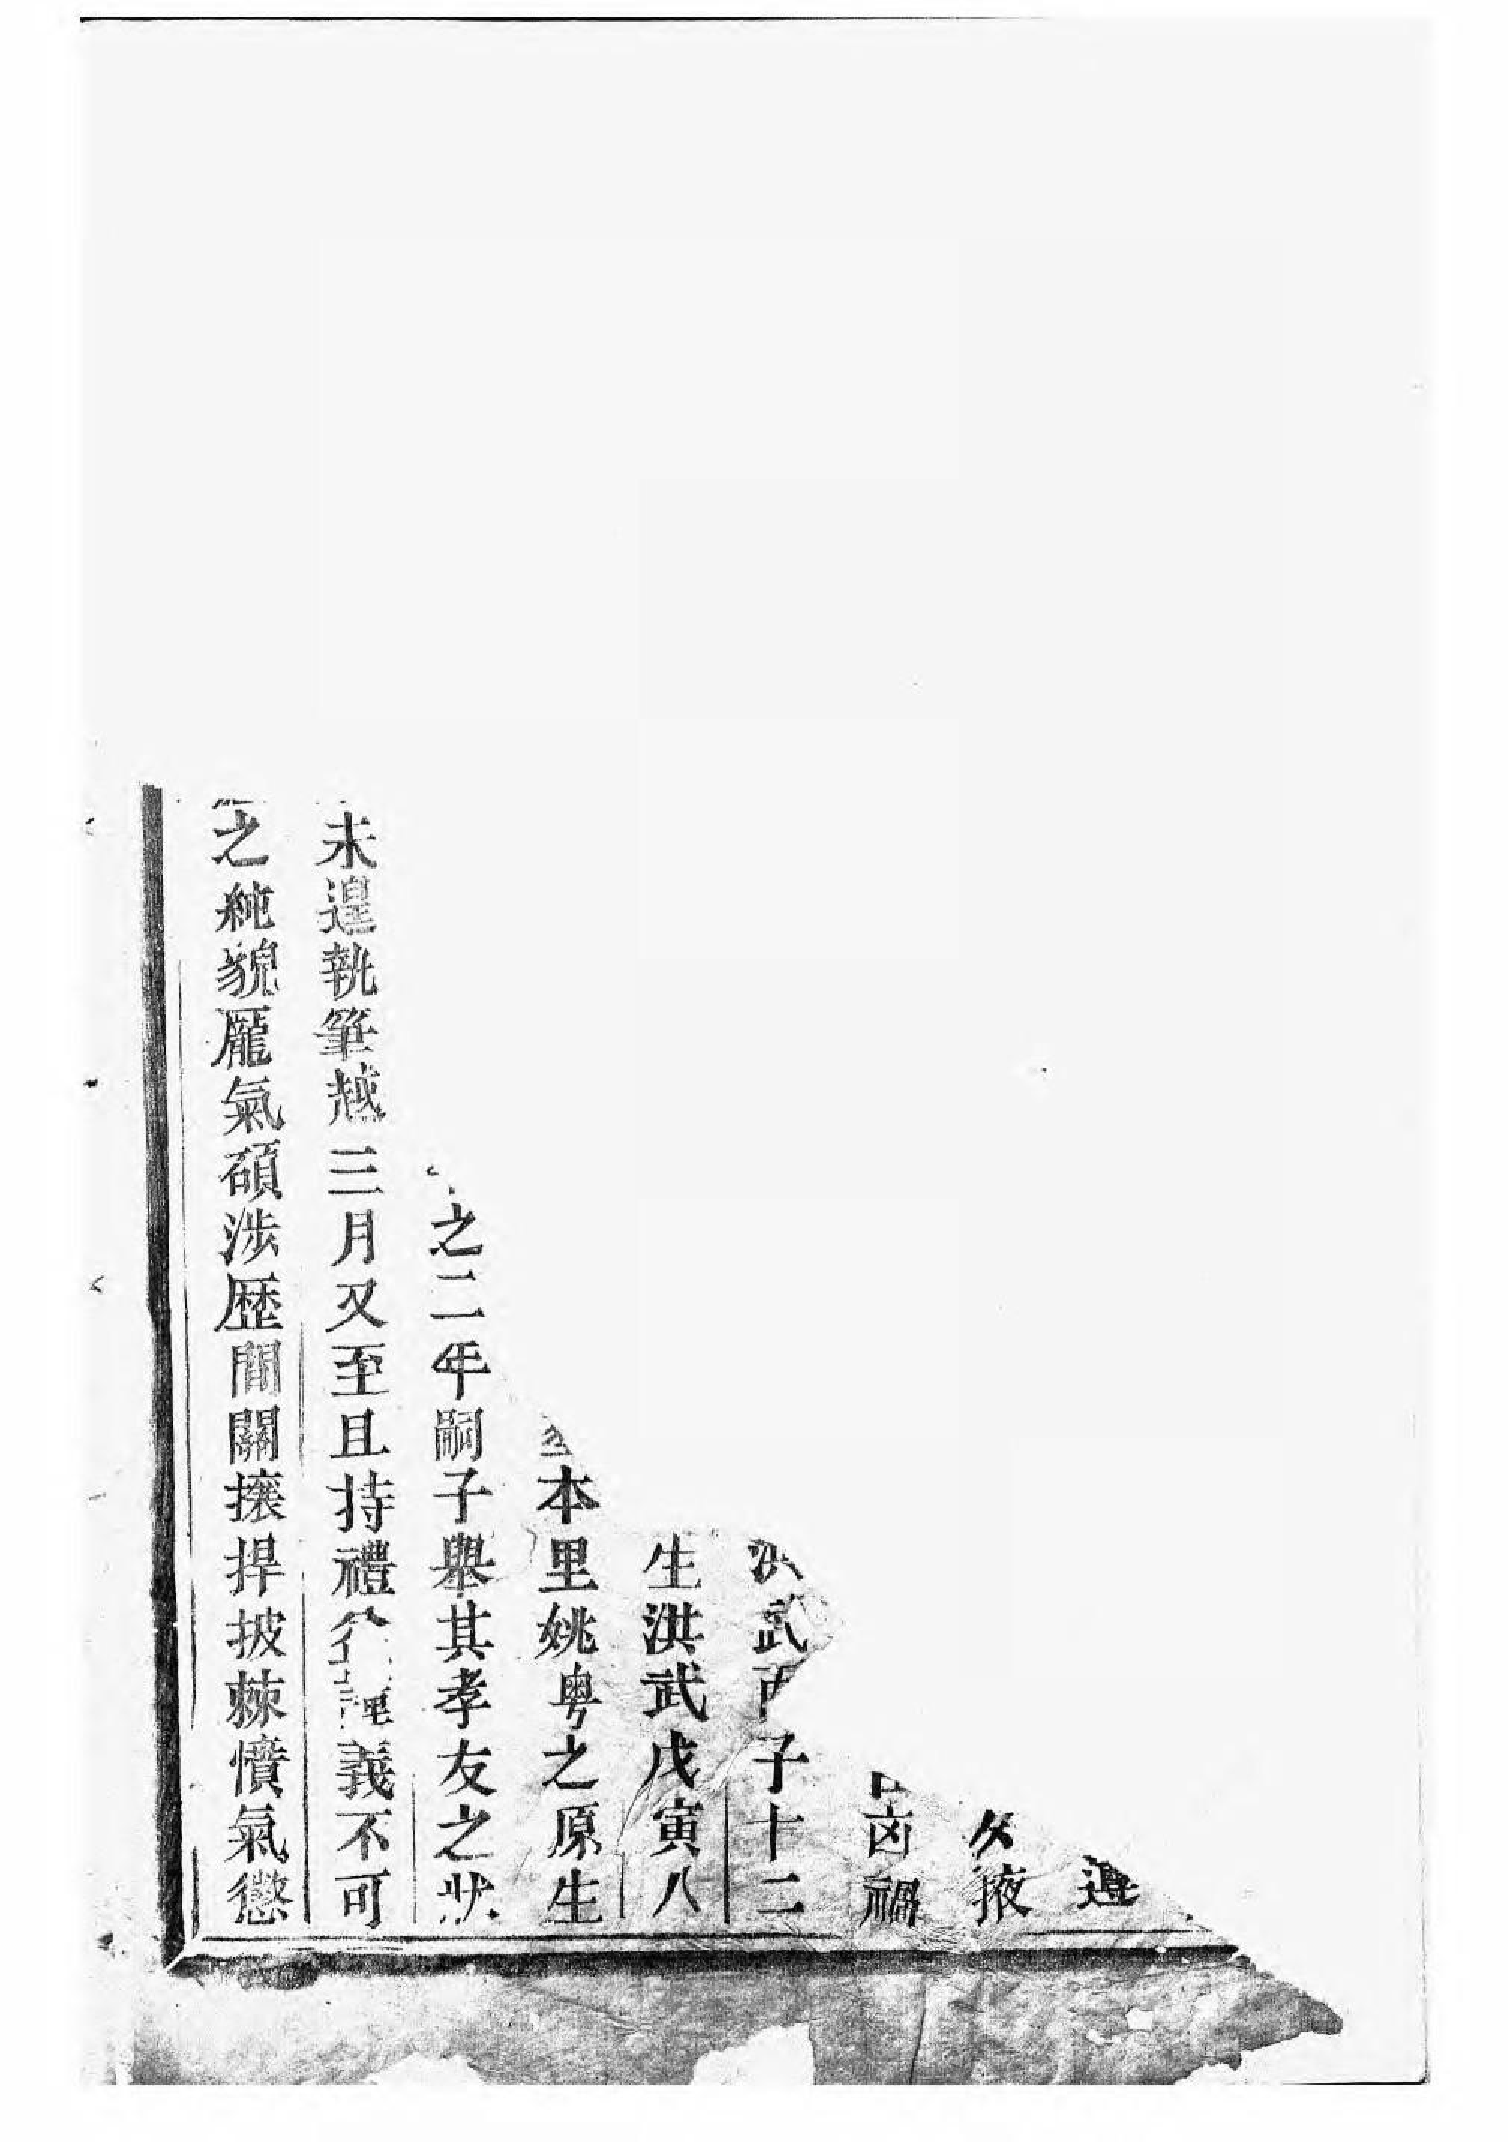 遵
掖
凶禍
洪武丙子十二
生洪武戊寅八
本里姚粤之原生
之二年嗣子舉其孝友之狀
未遑執筆越三月又至且持禮義不可
之純貌厖氣碩涉歷間關攘捍披棘憤氣懲